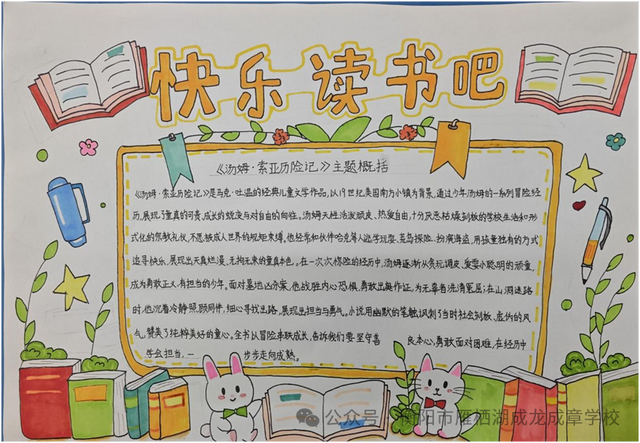 快乐读书吧
《汤姆·索亚历险记》主题概括
《汤姆·索亚历险记》是马克·吐温的经典儿童文学作品,以19世纪美国南方小镇为背景,通过少年汤姆的一系列冒险经
历,展现了童真的可贵,成长的蜕变与对自由的向往。汤姆天性活泼顽皮、热爱自由,十分厌恶枯燥刻板的学校生活和形
式化的宗教礼仪,不愿被成人世界的规矩束缚,他经常和伙伴哈克等人逃学玩耍、荒岛探险、扮演海盗,用孩童独有的方式
追寻快乐,展现出天真烂漫、无拘无束的童真本色。在一次次惊险的经历中,汤姆逐渐从贪玩调皮、爱耍小聪明的顽童,
成为勇敢正义、有担当的少年。面对墓地凶杀案,他战胜内心恐惧,勇敢出庭作证,为无辜者洗清冤屈;在山洞迷路
时,他沉着冷静照顾同伴,细心寻找出路,展现出担当与勇气。小说用幽默的笔触讽刺了当时社会刻板、虚伪的风
气,赞美了纯粹美好的童心。全书以冒险串联成长,告诉我们要坚守善良本心,勇敢面对困难,在经历中
学会担当,一步步走向成熟。
公众号·阳市雁栖湖成龙成章学校